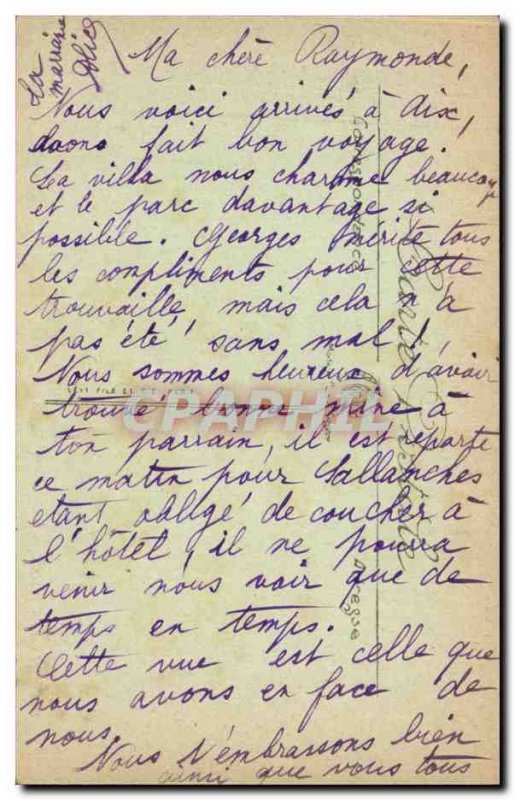 Ma chère Raymonde,
Nous voici arrivés à Aix,
avons fait bon voyage.
La villa nous charme beaucoup
et le parc davantage si
possible. Georges mérite tous
les compliments pour cette
trouvaille, mais cela n'a
pas été sans mal!
Nous sommes heureux d'avoir
trouvé bonne mine à
ton parrain, il est reparti
ce matin pour Sallanches
étant obligé de coucher à
l'hôtel, il ne pourra
venir nous voir que de
temps en temps.
Cette vue est celle que
nous avons en face de
nous.
Nous t'embrassons bien
ainsi que vous tous
Ta
marraine
Alice
Carte Postale
Correspondance
Adresse
LEVY FILS ET CIE, PARIS
CPAPHIL